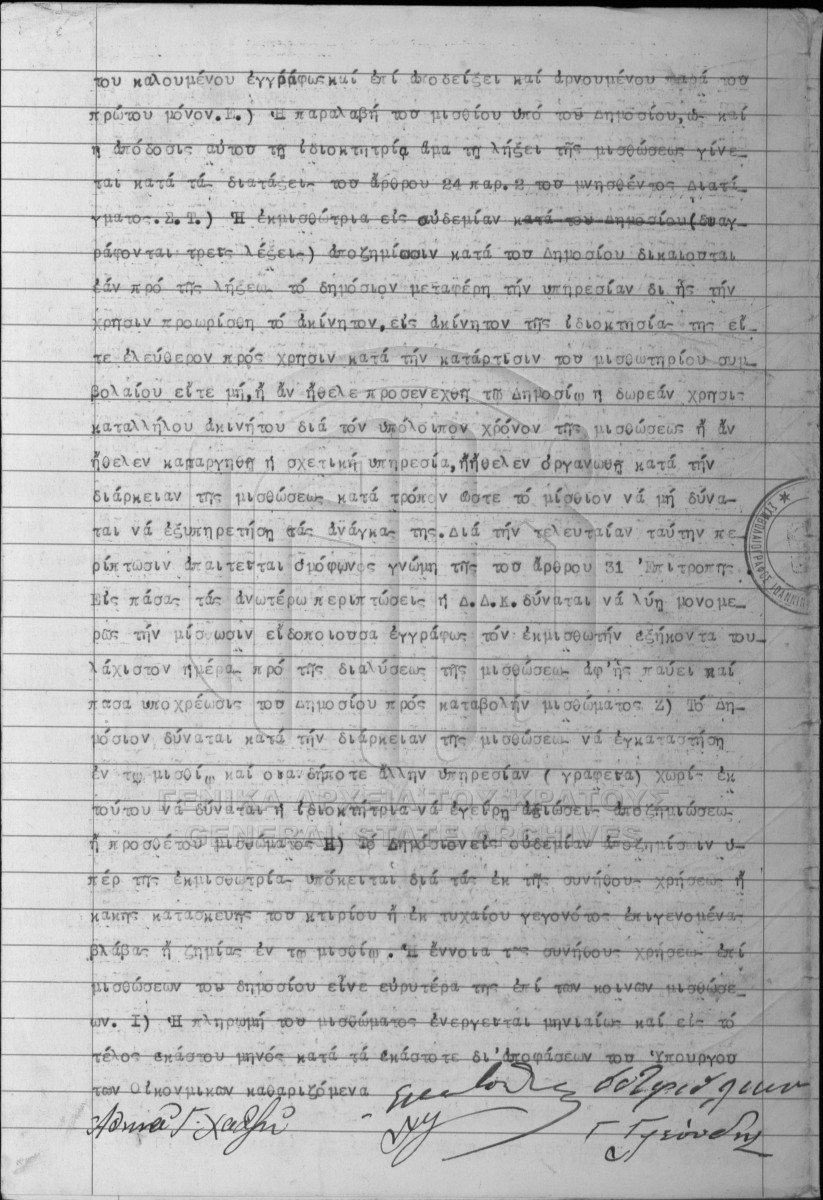 του καλουμένου ἐγγράφως καί ἐπί ἀποδείξει καί ἀρνουμένου παρά του
πρώτου μόνον. Ε.) Ἡ παραλαβή του μισθίου υπό του Δημοσίου, ω- καί
η ἀπόδοσις αὐτου τῃ ἰδιοκτητρίᾳ ἅμα τῃ λήξει τῆς μισθώσεως γίνε-
ται κατά τά- διατάξει- του ἄρθρου 24 παρ. 2 του μνησθέντος Διατά-
γματος. Σ.Τ.) Ἡ ἐκμισθώτρια εἰς οὐδεμίαν κατά του Δημοσίου (δυαγ-
ράφονται τρεις λέξει-) ἀποζημίωσιν κατά του Δημοσίου δικαιουται
ἐάν πρό τῆς λήξεω- τό δημόσιον μεταφέρη τήν υπηρεσίαν δι ἧς τήν
χρησιν προωρίσθη τό ἀκίνητον, εἰς ἀκίνητον τῆς ἰδιοκτησία- της εἴ-
τε ἐλεύθερον πρός χρησιν κατά τήν κατάρτισιν του μισθωτηρίου συμ-
βολαίου εἴτε μή, ἤ ἄν ἤθελε προσενεχθῃ τῷ Δημοσίῳ η δωρεάν χρησις
καταλλήλου ἀκινήτου διά τόν υπόλοιπον χρόνον τῆς μισθώσεως ἤ ἄν
ἤθελεν καταργηθῃ ἡ σχετική υπηρεσία, ἤ ἤθελεν ὀργανωθῃ κατά τήν
διάρκειαν της μισθώσεως κατά τρόπον ὥστε τό μίσθιον νά μή δύνα-
ται νά ἐξυπηρετήσῃ τάς ἀνάγκα- της. Διά τήν τελευταίαν ταύτην πε-
ρίπτωσιν ἀπαιτειται ὁμόφωνος γνώμη τῆς του ἄρθρου 31 Ἐπιτροπης.
Εἰς πάσας τάς ἀνωτέρω περιπτώσεις ἡ Δ.Δ.Κ. δύναται νά λύῃ μονομε-
ρῶς τήν μίσθωσιν εἰδοποιουσα ἐγγράφως τόν ἐκμισθωτήν ἑξήκοντα του-
λάχιστον ημέρα- πρό τῆς διαλύσεως τῆς μισθώσεω- ἀφ'ἧς παύει καί
πασα υποχρέωσις του Δημοσίου πρός καταβολήν μισθώματος Ζ) Τό Δη-
μόσιον δύναται κατά τήν διάρκειαν της μισθώσεω- νά ἐγκαταστήσῃ
ἐν τῳ μισθίῳ καί οιανδήποτε ἄλλην υπηρεσίαν ( γραφεια) χωρί- ἐκ
τούτου νά δύναται ἡ ἰδιοκτήτρια νά ἐγείρῃ ἀξιώσει- ἀποζημιώσεω-
ἤ προσθέτου μισθώματος Η) Τό Δημόσιον εἰς οὐδεμίαν ἀποζημίωσιν υ-
πέρ της ἐκμισθωτρία- υπόκειται διά τάς ἐκ τῆς συνήθου- χρήσεως ἤ
κακης κατασκευης του κτιρίου ἤ ἐκ τυχαίου γεγονότος ἐπιγενομένας
βλάβας ἤ ζημίας ἐν τῳ μισθίῳ. Ἡ ἔννοια τῆς συνήθους χρήσεω- ἐπί
μισθώσεων του δημοσίου εἶνε εὐρυτέρα της ἐπί των κοινων μισθώσε-
ων. Ι) Ἡ πληρωμή του μισθώματος ἐνεργειται μηνιαίως καί εἰς τό
τέλος ἑκάστου μηνός κατά τά ἑκάστοτε δι'ἀποφάσεων του Ὑπουργου
των Οἰκονμικων καθαριζόμενα
ΓΕΝΙΚΑ ΑΡΧΕΙΑ ΤΟΥ ΚΡΑΤΟΥΣ
GENERAL STATE ARCHIVES